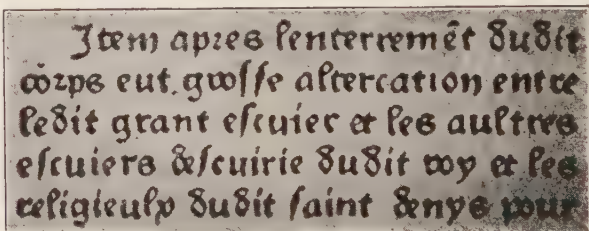 Item apres lenterremēt dudit
corps eut grosse altercation entre
ledit grant escuier et les aultres
escuiers descuirie dudit roy et les
religieulx dudit saint denys pour